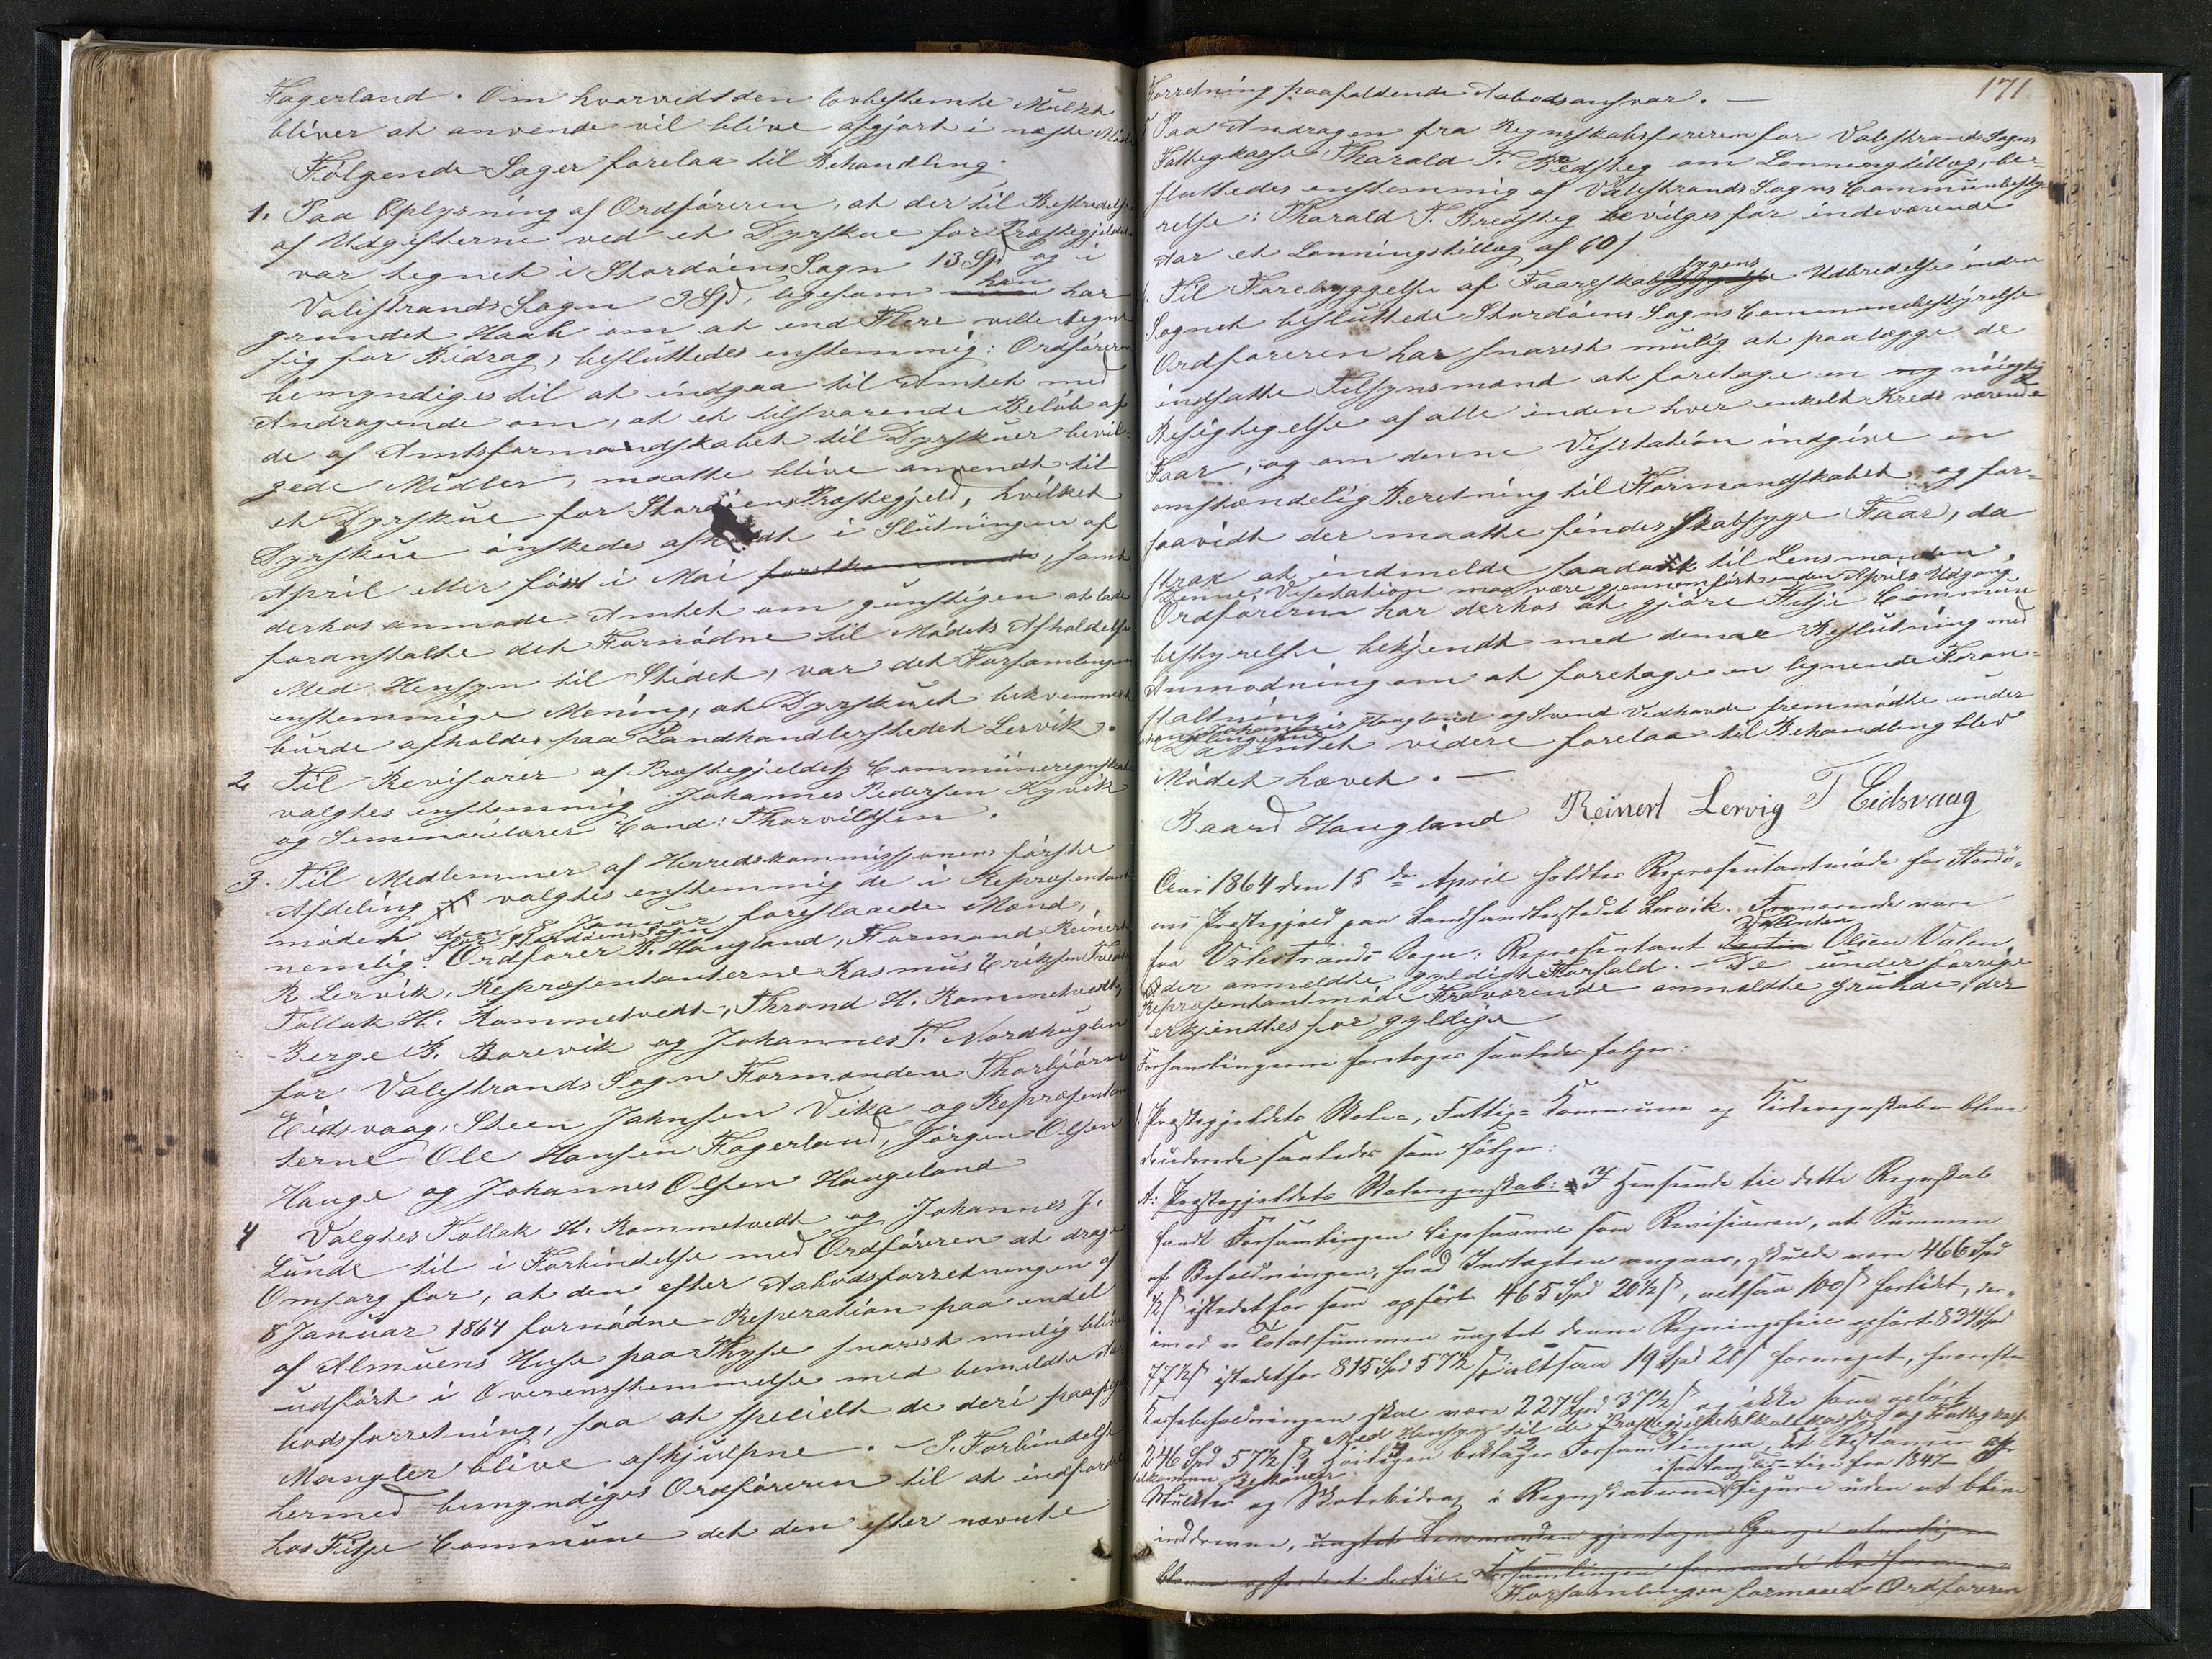 Fagerland. Om hvorvidt den lovbestemte Mulkt
bliver at anvende vil blive afgjort i næste Møde
Følgende Sager forelaa til Behandling.
1. Paa Oplysning af Ordføreren, at der til Bestridelse
af Udgifterne ved et Dyrskue for Præstegjeldet
var tegnet i Stordøens Sogn 13 Spd og i
Valestrands Sogn 3 Spd, ligesom han har
grundet Haab om at end Flere ville tegne
sig for Bidrag, besluttedes enstemmig: Ordføreren
bemyndiges til at indgaa til Amtet med
Andragende om, at et tilsvarende Beløb af
de af Amtsformandskabet til Dyrskuer bevil-
gede Midler, maatte blive anvendt til
et Dyrskue for Stordøens Præstegjeld, hvilket
Dyrskue ønskedes afholdt i Slutningen af
April eller først i Mai, samt
derhos anmode Amtet om gunstigen at lade
foranstalte det Fornødne til Mødets Afholdelse
Med Hensyn til Stedet, var det Forsamlingens
enstemmige Mening, at Dyrskuet bekvemmest
burde afholdes paa Landhandlerstedet Lervik.
2. Til Revisorer af Præstegjeldets Communeregnskaber
valgtes enstemmig Johannes Pedersen Kyvik
og Seminarilærer Cand: Thorvildsen.
3. Til Medlemmer af Herredskommissionens første
Afdeling valgtes enstemmig de i Repræsentant-
mødet den 8 Januar foreslaaede Mænd,
for Stordøens Sogn
nemlig: Ordfører B. Haugland, Formand Reinert
R Lervik, Repræsentanterne Rasmus Eriksen Tvedt
Tollak H. Rommetvedt, Thrond H. Rommetvedt,
Berge B. Borevik og Johannes T. Nordhuglen
for Valestrands Sogn Formændene Thorbjørn
Eidsvaag, Steen Johnsen Vika og Repræsentan
terne Ole Hansen Fagerland, Jørgen Olsen
Hauge og Johannes Olsen Haugeland
4 Valgtes Tollak H. Rommetvedt og Johannes J.
Lunde til i Forbindelse med Ordføreren at drage
Omsorg for, at den efter Aabodsforretningen af
8 Januar 1864 fornødne Reperation paa endel
af Almuens Huse paa Thyse snarest mulig bliver
udført i Overensstemmelse med bemeldte Aa
bodsforretning, saa at specielt de deri paapegede
Mangler blive afhjulpne. - I Forbindelse
hermed bemyndiges Ordføreren til at indfordre
hos Fitje Commune det den efter nævnte
171
Forretning paafaldende Aabodsansvar. —
5 Paa Andragen fra Regnskabsføreren for Valestrands Sogns
Fattigkasse Tharald T. Bredsteg om Lønningstillæg, be-
sluttedes enstemmig af Valestrands Sogns Communbesty-
relse: Tharald T. Bredsteg bevilges for indeværende
Aar et Lønningstillæg af 60 s
6. Til Forebyggelse af Faareskabsygens Udbredelse inden
Sognet besluttede Stordøens Sogns Communebestyrelse
Ordføreren har snarest mulig at paalægge de
indsatte Tilsynsmænd at foretage en ny nøiagtig
Besigtigelse af alle inden hver enkelt Kreds værende
Faar, og om denne Visitation indgive en
omstændelig Beretning til Formandskabet og for-
saavidt der maatte findes skabsyge Faar, da
strax at indmelde saadant til Lensmanden.
Denne Visitation maa være gjennemført inden Aprils Udgang
Ordføreren har derhos at gjøre Fitje Commune
bestyrelse bekjendt med denne Beslutning med
Anmodning om at foretage en lignende Foran-
staltning.
Johannes Haugland og Svend Vedhovde fremmødte under
Da Intet videre forelaa til Behandling blev
Mødet hævet. —
Baard Haugland Reinert Lervig T Eidsvaag
Aar 1864 den 15de April holdtes Repræsentantmøde for Stordø-
ens Præstegjeld paa Landhandlerstedet Lervik. Fraværende vare
fra Valestrands Sogn: Repræsentant Valentin Olsen Valen
der anmeldte gyldigt Forfald. — De under forrige
Repræsentantmøde Fraværende anmeldte Grunde, der
erkjendtes for gyldige
Forhandlingerne foretoges saaledes følger:
1. Præstegjeldets Skole-, Fattig- Kommune og Kirkeregnskaber bleve
deciderede saaledes som følger:
A: Præstegjeldets Skoleregnskab: I Henseende til dette Regnskab
fandt Forsamlingen ligesaavel som Revisionen, at Summen
af Beholdningen, hvad Indtægten angaar, skulde være 466 Spd
½ s istedetfor som opført 465 Spd 20½ s, altsaa 100 s forlidt, der-
imod er Totalsummen uagtet denne Regningsfeil opført 834 Spd
77½ s istedetfor 815 Spd 57½ s, altsaa 19 Spd 20 s formeget, hvorefter
Kassebeholdningen skal være 227 Spd 37½ s og ikke som opført
246 Spd 57½ s. Med Hensyn til de Præstegjeldets Skolekasse og Fattigkasse
tilkommne Restancer høiligen beklager Forsamlingen, at Restancer af
Mulkter og Skolebidrag i Regnskaberne figurere uden at blive
inddrevne, uagtet Lensmanden gjentagne Gange
Forsamlingen formaaede Ordføreren